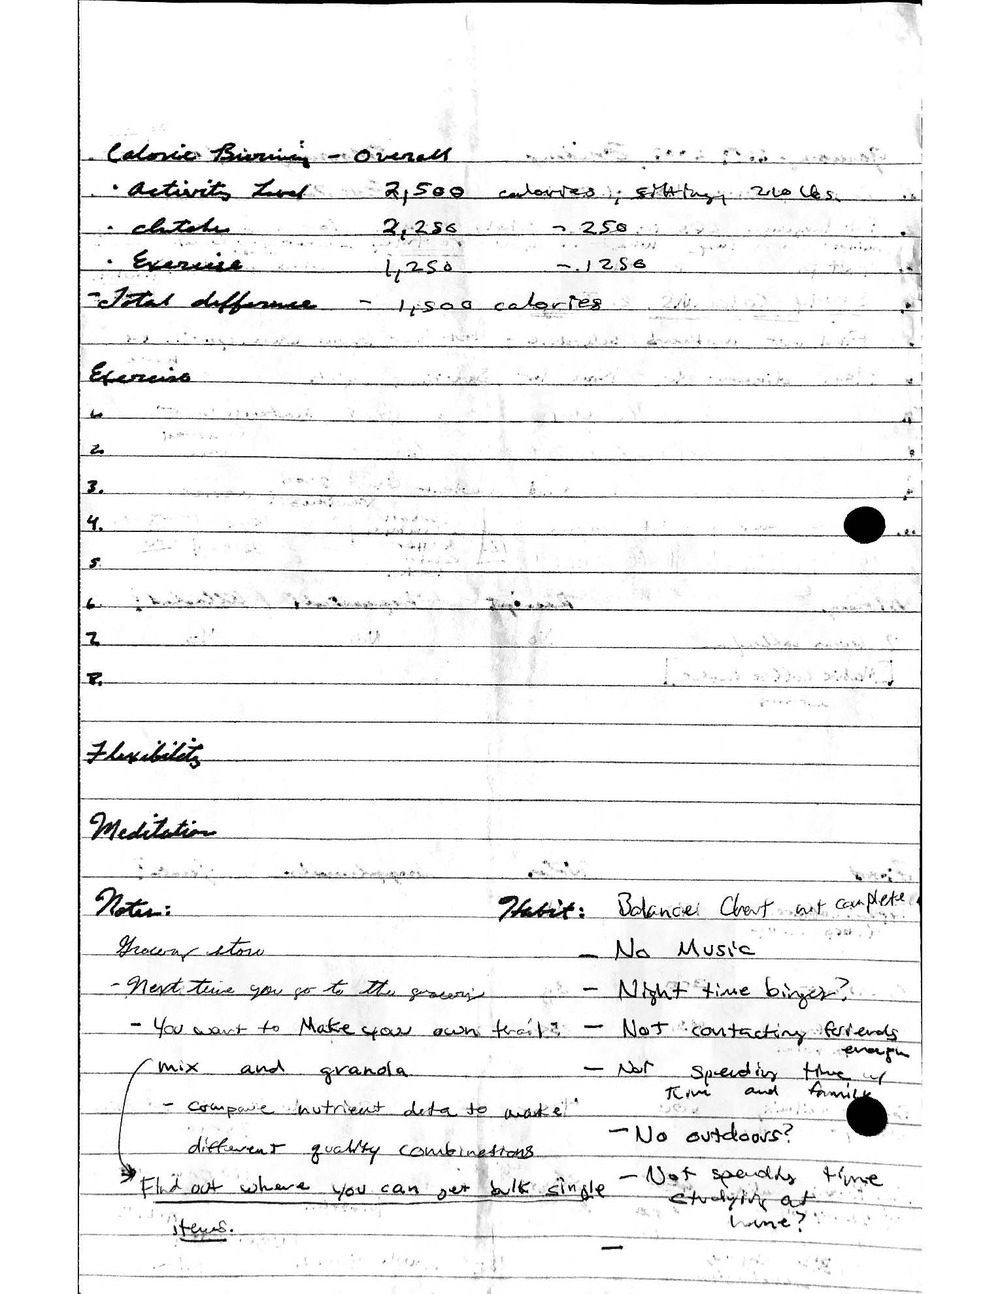 Calorie Burning - Overall
· Activity Level 2,500 calories, sitting, 210 lbs.
· 2,250 - 250
· Exercise 1,250 - 1250
- Total difference - 1,500 calories
Exercise
1.
2.
3.
4.
5.
6.
7.
8.
Flexibility
Meditation
Notes:
Grocery store
- Next time you go to the grocery
- You want to Make your own trail
mix and granola
- compare nutrient data to make
different quality combinations
Find out where you can get bulk single
items.
Habit: Balance Chart not complete
- No Music
- Night time binges?
- Not contacting friends
enough
- Not spending time w/
and family
- No outdoors?
- Not spending time
studying at
home?
-